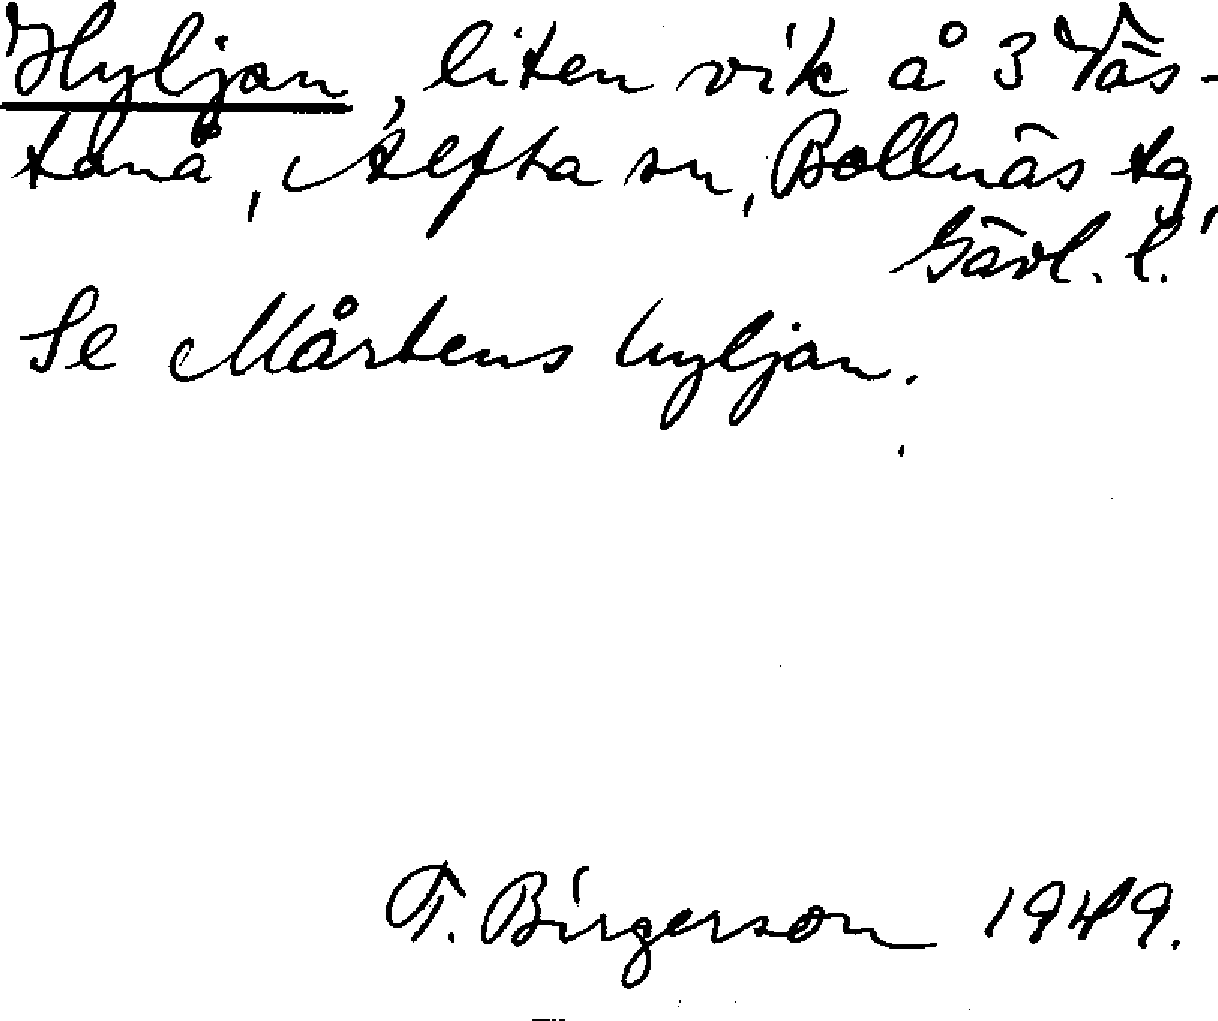 Hyljan, liten vik å 3 Väs-
tanå, Alfta sn, Bollnäs tg,
Gävl. l.
Se Mårtens hyljan.
T. Birgerson 1949.